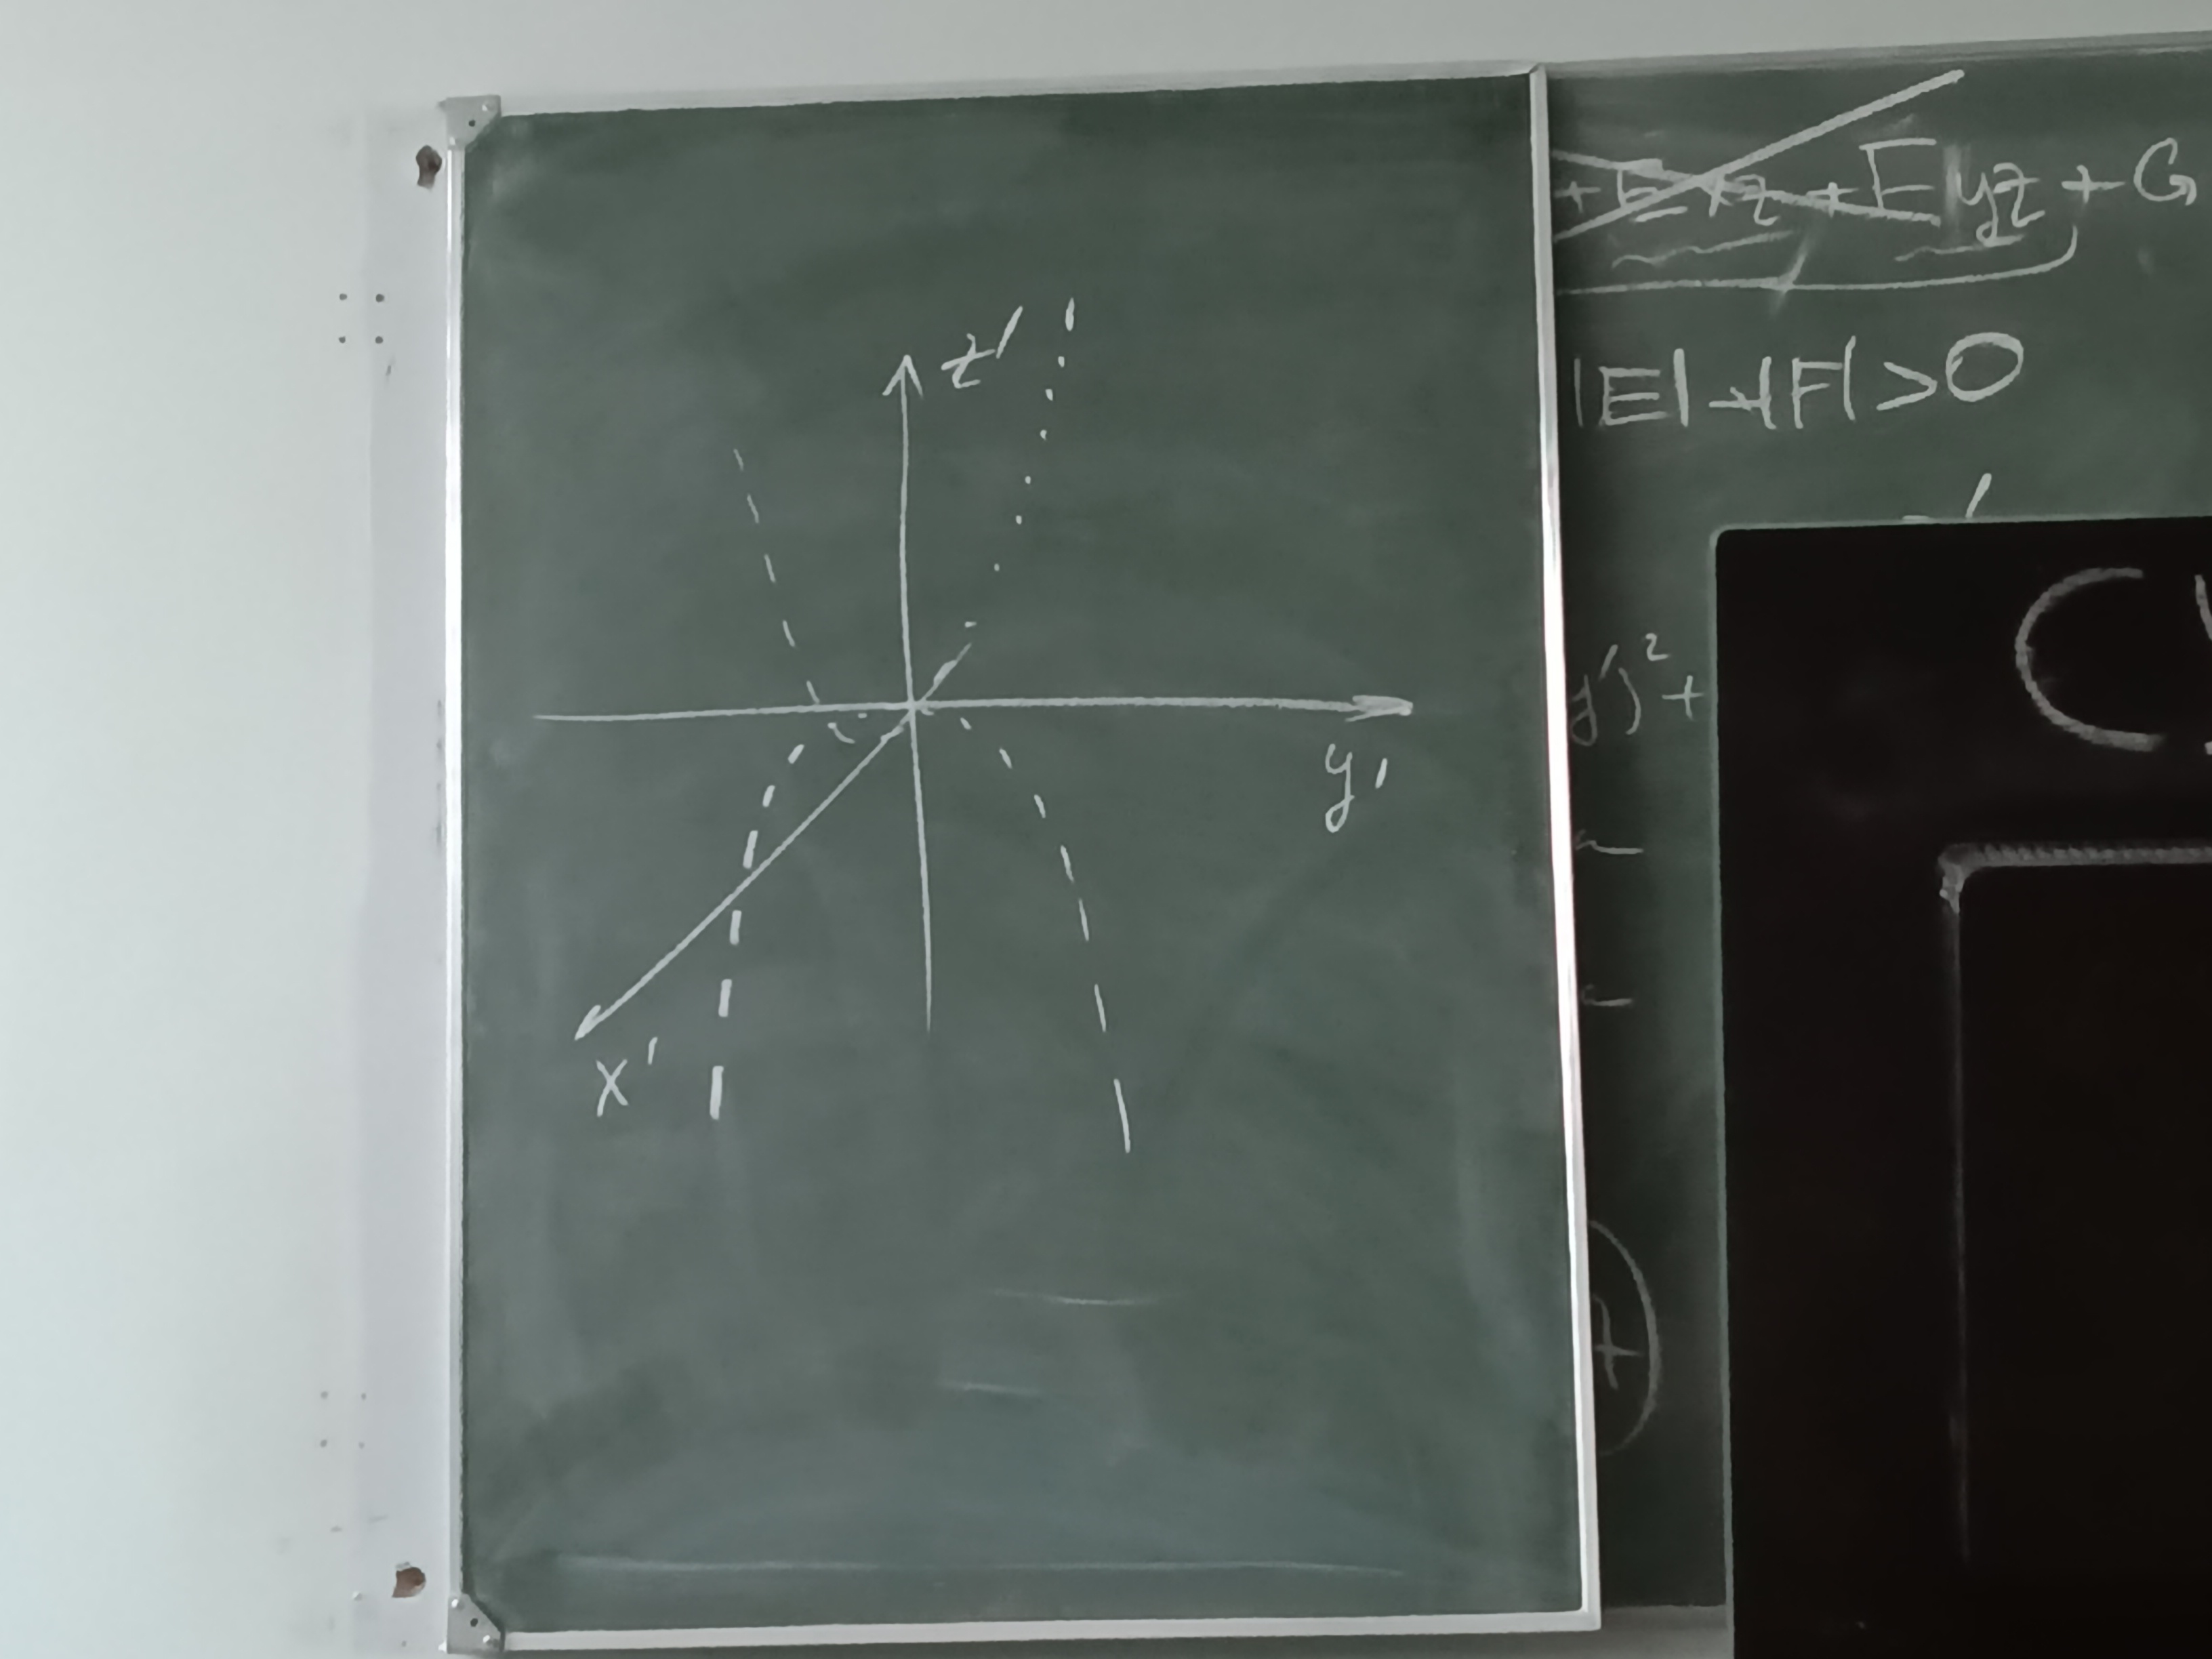 z'
y'
x'
+ Exz + Fyz + G
|E| + |F| > 0
y')² +
C
+